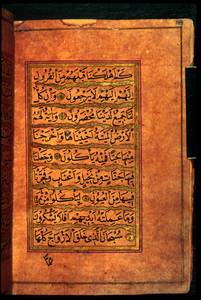 كم اهلكنا قبلهم من القرون
انهم اليهم لا يرجعون وان كل لما
جميع لدينا محضرون واية لهم
الارض الميتة احييناها واخرجنا
منها حبا فمنه ياكلون وجعلنا
فيها جنات من نخيل واعناب وفجرنا
فيها من العيون لياكلوا من ثمره
وما عملته ايديهم افلا يشكرون
سبحان الذي خلق الازواج كلها